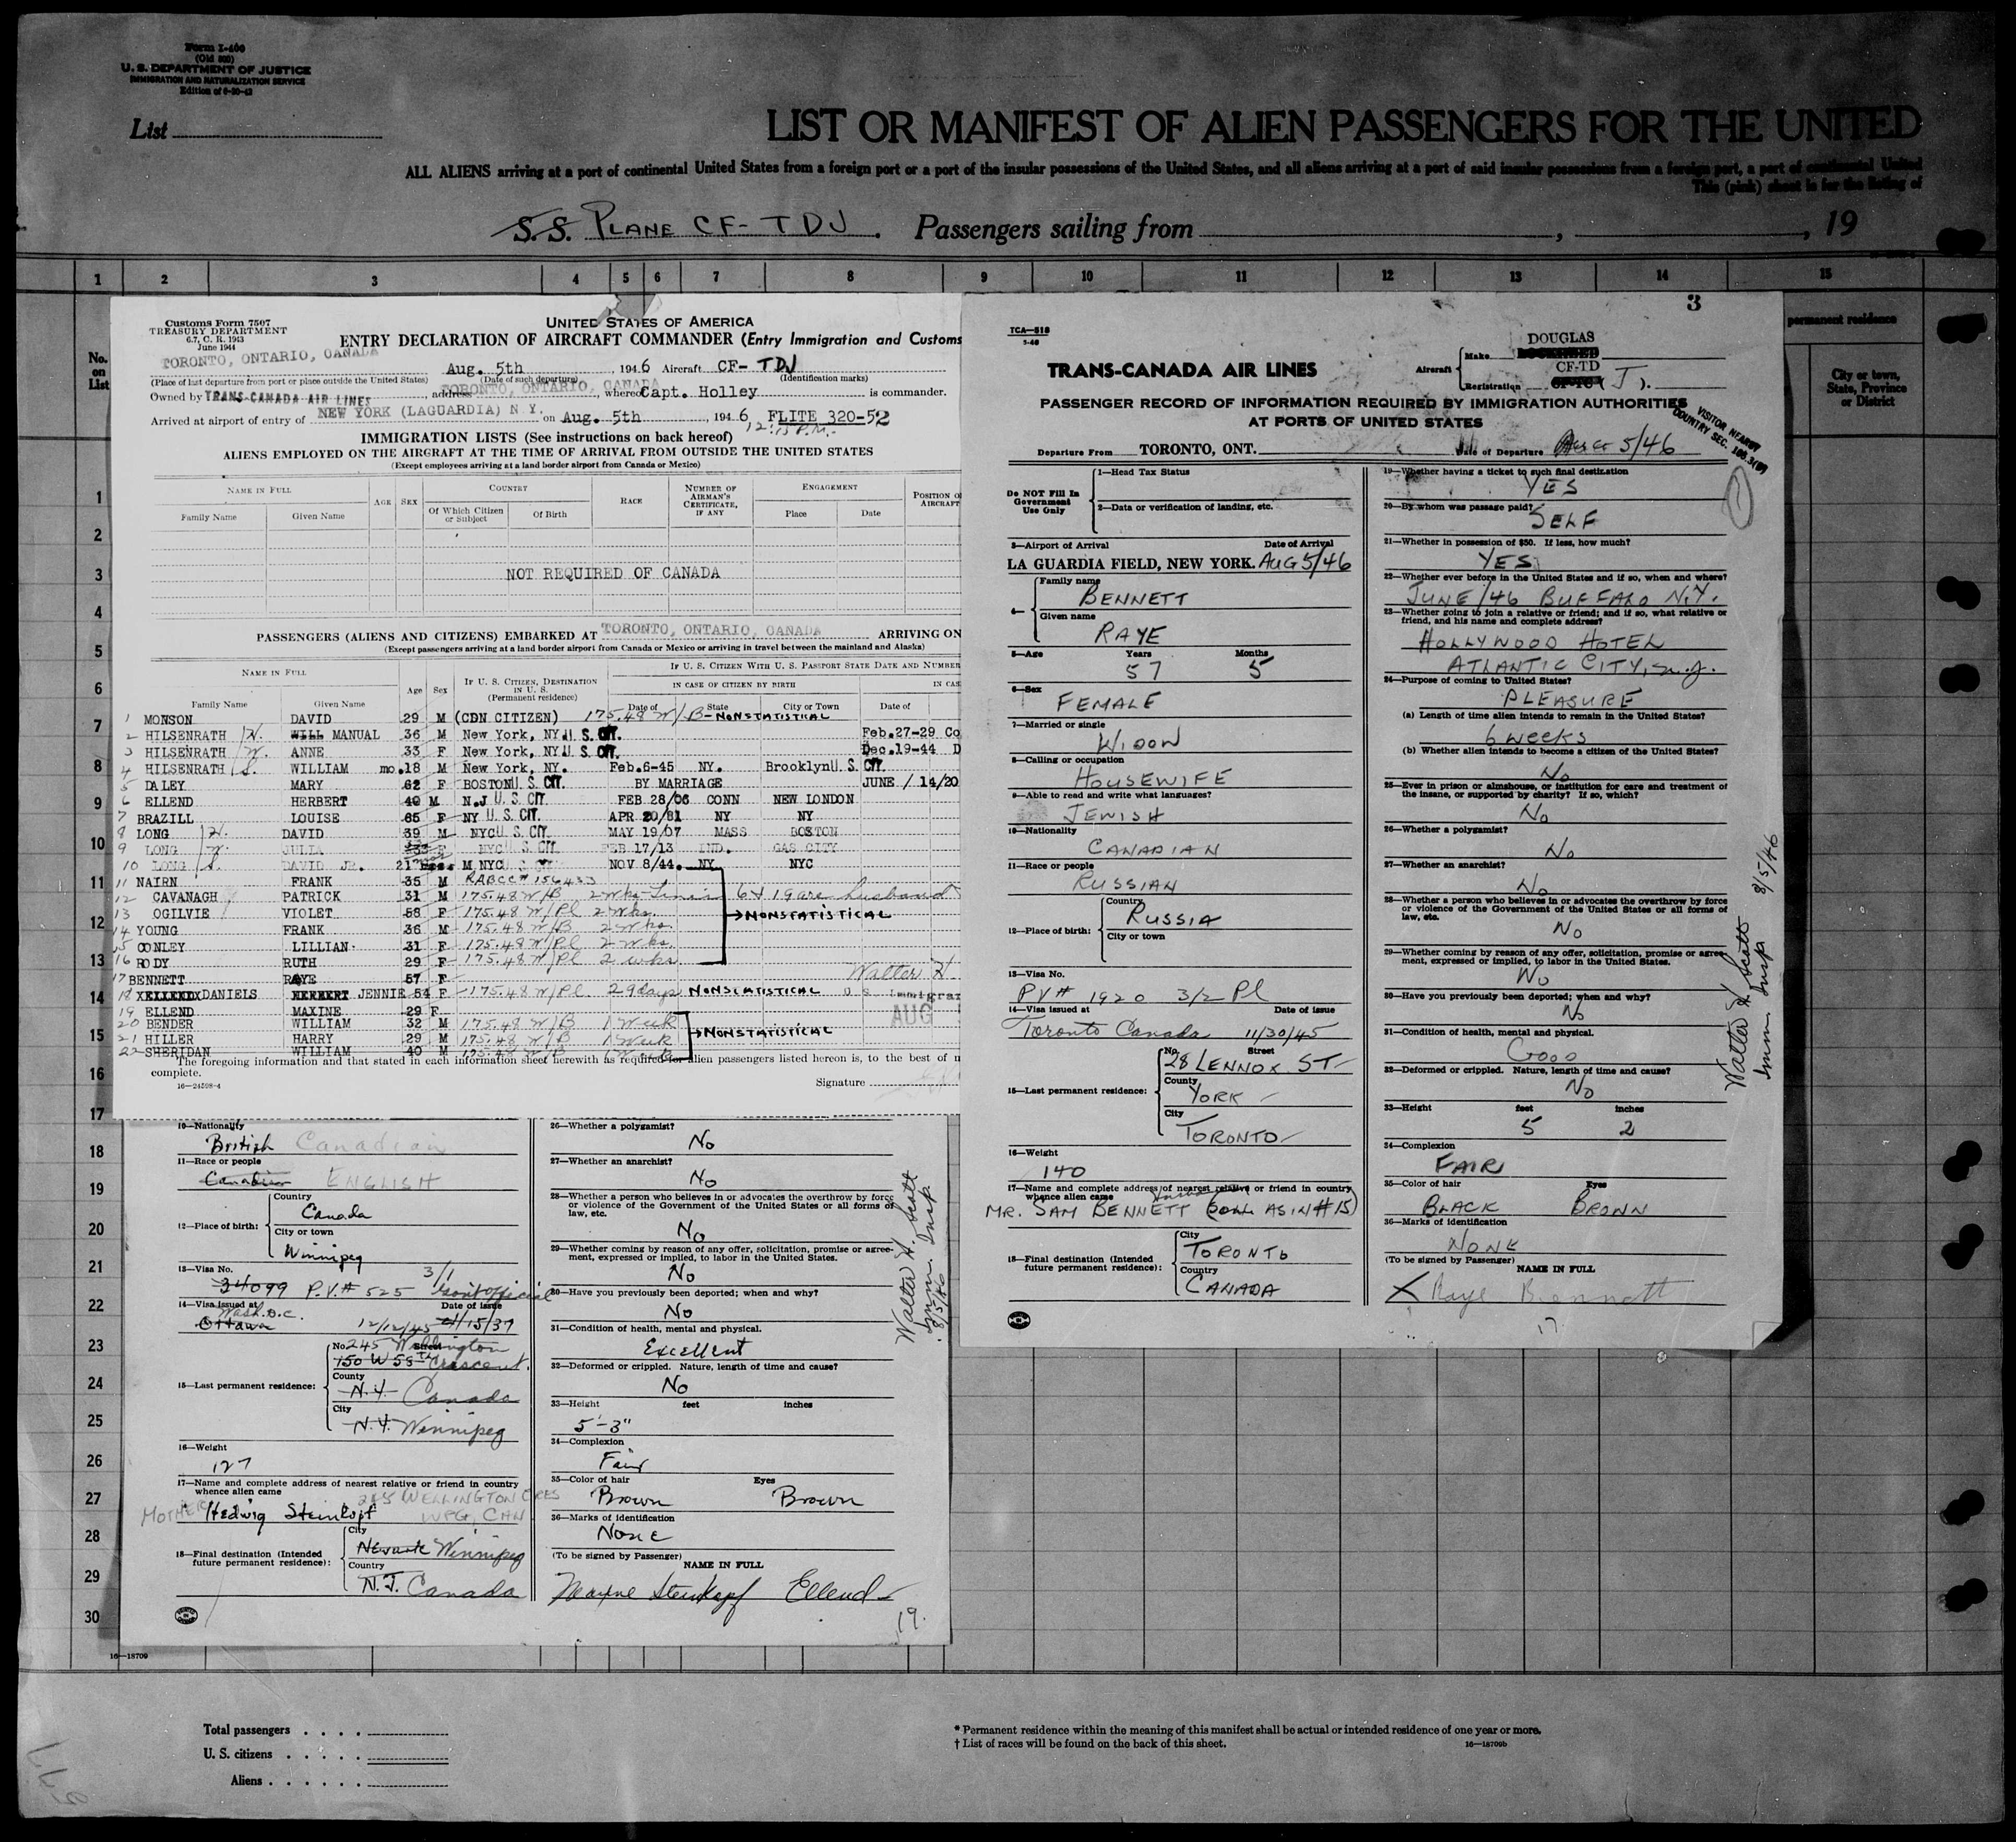 Form I-400
(Old 500)
U. S. DEPARTMENT OF JUSTICE
IMMIGRATION AND NATURALIZATION SERVICE
List
LIST OR MANIFEST OF ALIEN PASSENGERS FOR THE UNITED
ALL ALIENS arriving at a port of continental United States from a foreign port or a port of the insular possessions of the United States, and all aliens arriving at a port of said insular possessions from a foreign port, a part of continental United
This (pink) sheet is for the listing of
S.S. PLANE CF-TDJ. Passengers sailing from , , 19
1 2 3 4 5 6 7 8 9 10 11 12 13 14 15
No. on List
permanent residence
City or town, State, Province or District
Customs Form 7507
TREASURY DEPARTMENT
6.7, C. R. 1943
June 1944
UNITED STATES OF AMERICA
ENTRY DECLARATION OF AIRCRAFT COMMANDER (Entry Immigration and Customs
TORONTO, ONTARIO, CANADA Aug. 5th , 1946 Aircraft CF- TDJ
(Place of last departure from port or place outside the United States) (Date of such departure) (Identification marks)
Owned by TRANS-CANADA AIR LINES address TORONTO, ONTARIO, CANADA, whereof Capt. Holley is commander.
Arrived at airport of entry of NEW YORK (LAGUARDIA) N Y. on Aug. 5th , 1946 FLITE 320-52
12:15 P.M.
IMMIGRATION LISTS (See instructions on back hereof)
ALIENS EMPLOYED ON THE AIRCRAFT AT THE TIME OF ARRIVAL FROM OUTSIDE THE UNITED STATES
(Except employees arriving at a land border airport from Canada or Mexico)
NAME IN FULL AGE SEX COUNTRY RACE NUMBER OF AIRMAN'S CERTIFICATE, IF ANY ENGAGEMENT POSITION O AIRCRAFT
Family Name Given Name Of Which Citizen or Subject Of Birth Place Date
NOT REQUIRED OF CANADA
PASSENGERS (ALIENS AND CITIZENS) EMBARKED AT TORONTO, ONTARIO, CANADA ARRIVING ON
(Except passengers arriving at a land border airport from Canada or Mexico or arriving in travel between the mainland and Alaska)
NAME IN FULL Age Sex IF U. S. CITIZEN, DESTINATION IN U. S. (Permanent residence) IF U. S. CITIZEN WITH U. S. PASSPORT STATE DATE AND NUMBER
IN CASE OF CITIZEN BY BIRTH IN CAS
Family Name Given Name Date of State City or Town Date of
1 MONSON DAVID 29 M (CDN CITIZEN) 175.48 W/B-NONSTATISTICAL
2 HILSENRATH H. WILL MANUAL 36 M New York, NY. U. S. CIT. Feb.27-29 Co
3 HILSENRATH W. ANNE 33 F New York, NY U. S. CIT. Dec.19-44 D
4 HILSENRATH S. WILLIAM mo.18 M New York, NY. Feb.6-45 NY. Brooklyn U. S. CIT.
5 DALEY MARY 62 F BOSTON U. S. CIT. BY MARRIAGE JUNE / 14/20
6 ELLEND HERBERT 40 M N.J U. S. CIT. FEB 28/06 CONN NEW LONDON
7 BRAZILL LOUISE 65 F NY U. S. CIT. APR 20/81 NY NY
8 LONG H. DAVID 39 M NYC U. S. CIT. MAY 19/07 MASS BOSTON
9 LONG W. JULIA 33 F NYC U. S. CIT. FEB 17/13 IND. GAS CITY
10 LONG S. DAVID JR. 21 mos M NYC NOV 8/44. NY NYC
11 NAIRN FRANK 35 M RABCC# 156433
12 CAVANAGH PATRICK 31 M 175.48 W/B 2 wks 6 & 19 are husband
13 OGILVIE VIOLET 58 F 175.48 W/Pl 2 wks. NONSTATISTICAL
14 YOUNG FRANK 36 M 175.48 W/B 2 wks.
15 CONLEY LILLIAN 31 F 175.48 W/Pl 2 wks.
16 RODY RUTH 29 F 175.48 W/Pl 2 wks
17 BENNETT RAYE 57 F Walter H
18 XELLENDX DANIELS HERBERT JENNIE 54 F 175.48 W/Pl. 29 days NONSTATISTICAL U S Immigrat
19 ELLEND MAXINE 29 F AUG
20 BENDER WILLIAM 32 M 175.48 W/B 1 Week
21 HILLER HARRY 29 M 175.48 W/B 1 Week NONSTATISTICAL
22 SHERIDAN WILLIAM 40 M 175.48 W/B
The foregoing information and that stated in each information sheet herewith as required for alien passengers listed hereon is, to the best of m
complete.
16—24598-4
Signature
10—Nationality
British Canadian
11—Race or people
Canadian ENGLISH
12—Place of birth:
Country
Canada
City or town
Winnipeg
13—Visa No. 3/1
34099 P.V.# 525 Gov't official
14—Visa issued at Date of issue
Wash. D.C.
Ottawa 12/12/45 4/15/37
15—Last permanent residence:
No. 245 Wellington Street
150 W 58th Crescent.
County
N.Y. Canada
City
N.Y. Winnipeg
16—Weight
127
17—Name and complete address of nearest relative or friend in country whence alien came
245 WELLINGTON CRES
MOTHER Hedwig Steinkopf WPG, CAN
18—Final destination (Intended future permanent residence):
City
Newark Winnipeg
Country
N.J. Canada
26—Whether a polygamist?
No
27—Whether an anarchist?
No
28—Whether a person who believes in or advocates the overthrow by force or violence of the Government of the United States or all forms of law, etc.
No
29—Whether coming by reason of any offer, solicitation, promise or agreement, expressed or implied, to labor in the United States.
No
30—Have you previously been deported; when and why?
No
31—Condition of health, mental and physical.
Excellent
32—Deformed or crippled. Nature, length of time and cause?
No
33—Height feet inches
5'-3"
34—Complexion
Fair
35—Color of hair Eyes
Brown Brown
36—Marks of identification
None
(To be signed by Passenger)
NAME IN FULL
Maxine Steinkopf Ellend
19.
Walter H. Scott
Imm. Insp.
8/5/46
3
TCA—518
5-46
TRANS-CANADA AIR LINES
Aircraft Make DOUGLAS
Registration CF-TD (J).
PASSENGER RECORD OF INFORMATION REQUIRED BY IMMIGRATION AUTHORITIES
AT PORTS OF UNITED STATES
VISITOR NEARBY
COUNTRY SEC.
Departure From TORONTO, ONT. Date of Departure AUG 5/46
Do NOT Fill In Government Use Only
1—Head Tax Status
2—Data or verification of landing, etc.
3—Airport of Arrival Date of Arrival
LA GUARDIA FIELD, NEW YORK. AUG 5/46
4—
Family name
BENNETT
Given name
RAYE
5—Age Years Months
57 5
6—Sex
FEMALE
7—Married or single
WIDOW
8—Calling or occupation
HOUSEWIFE
9—Able to read and write what languages?
JEWISH
10—Nationality
CANADIAN
11—Race or people
RUSSIAN
12—Place of birth:
Country
RUSSIA
City or town
13—Visa No.
PV# 1920 3/2 Pl
14—Visa issued at Date of issue
Toronto Canada 11/30/45
15—Last permanent residence:
No. Street
28 LENNOX ST
County
YORK
City
TORONTO
16—Weight
140
17—Name and complete address of nearest relative or friend in country whence alien came
MR. SAM BENNETT (SON AS IN #15)
18—Final destination (Intended future permanent residence):
City
TORONTO
Country
CANADA
19—Whether having a ticket to such final destination
YES
20—By whom was passage paid?
SELF
21—Whether in possession of $50. If less, how much?
YES
22—Whether ever before in the United States and if so, when and where?
JUNE/46 BUFFALO N.Y.
23—Whether going to join a relative or friend; and if so, what relative or friend, and his name and complete address?
HOLLYWOOD HOTEL
ATLANTIC CITY, N.J.
24—Purpose of coming to United States?
PLEASURE
(a) Length of time alien intends to remain in the United States?
6 weeks
(b) Whether alien intends to become a citizen of the United States?
No
25—Ever in prison or almshouse, or institution for care and treatment of the insane, or supported by charity? If so, which?
No
26—Whether a polygamist?
No
27—Whether an anarchist?
No
28—Whether a person who believes in or advocates the overthrow by force or violence of the Government of the United States or all forms of law, etc.
No
29—Whether coming by reason of any offer, solicitation, promise or agreement, expressed or implied, to labor in the United States.
No
30—Have you previously been deported; when and why?
No
31—Condition of health, mental and physical.
GOOD
32—Deformed or crippled. Nature, length of time and cause?
No
33—Height feet inches
5 2
34—Complexion
FAIR
35—Color of hair Eyes
BLACK BROWN
36—Marks of identification
NONE
(To be signed by Passenger)
NAME IN FULL
X Raye Bennett
17
Walter H Scott
Imm Insp
8/5/46
1 2 3 4 5 6 7 8 9 10 11 12 13 14 15 16 17 18 19 20 21 22 23 24 25 26 27 28 29 30
16—18709
Total passengers
U. S. citizens
Aliens
* Permanent residence within the meaning of this manifest shall be actual or intended residence of one year or more.
† List of races will be found on the back of this sheet.
16—18709b